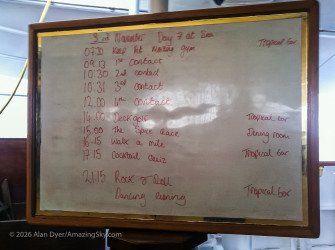 3rd November Day 7 at Sea
07:30 Keep Fit morning gym Tropical bar
09.13 1st Contact
10:30 2nd contact
10:31 3rd contact
12.00 4th contact
14.00 Deck golf Tropical bar
15.00 The Spice Race Dining room
16.15 Walk a mile
17.15 Cocktail Quiz Tropical bar
21.15 Rock & Roll
Dancing evening Tropical bar
© 2026 Alan Dyer/AmazingSky.com